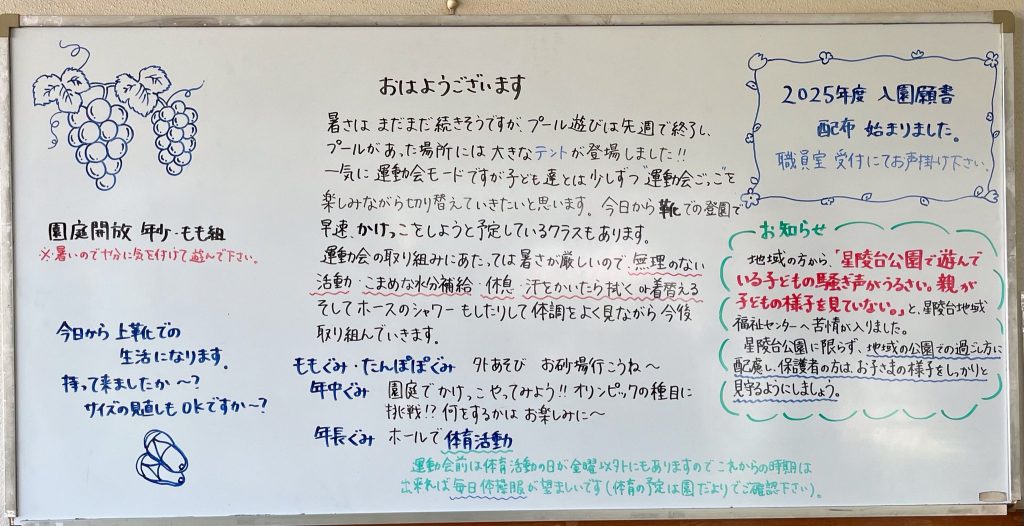 おはようございます
暑さは まだまだ続きそうですが、プール遊びは先週で終了し、
プールがあった場所には 大きなテントが登場しました!!
一気に 運動会モードですが子ども達とは少しずつ"運動会ごっこ"を
楽しみながら切り替えていきたいと思います。今日から 靴での登園で
早速、かけっこをしようと予定しているクラスもあります。
運動会の取り組みにあたっては暑さが厳しいので、無理のない
活動・こまめな水分補給・休息・汗をかいたら拭く or 着替える
そしてホースのシャワーもしたりして体調をよく見ながら今後
取り組んでいきます。
ももぐみ・たんぽぽぐみ 外あそび お砂場行こうね〜
年中ぐみ 園庭でかけっこやってみよう!! オリンピックの種目に
挑戦!? 何をするかは お楽しみに〜
年長ぐみ ホールで 体育活動
運動会前は体育活動の日が金曜以外にもありますので これからの時期は
出来れば毎日体操服が望ましいです(体育の予定は園だよりでご確認下さい)。
園庭開放 年少・もも組
※暑いので十分に気を付けて遊んで下さい。
今日から 上靴での
生活になります。
持って来ましたか〜?
サイズの見直しも OKですか〜?
2025年度 入園願書
配布 始まりました。
職員室 受付にてお声掛け下さい。
お知らせ
地域の方から、「星陵台公園で遊んで
いる子どもの騒ぎ声がうるさい。親が
子どもの様子を見ていない。」と、星陵台地域
福祉センターへ苦情が入りました。
星陵台公園に限らず、地域の公園での過ごし方に
配慮し、保護者の方は、お子さまの様子をしっかりと
見守るようにしましょう。